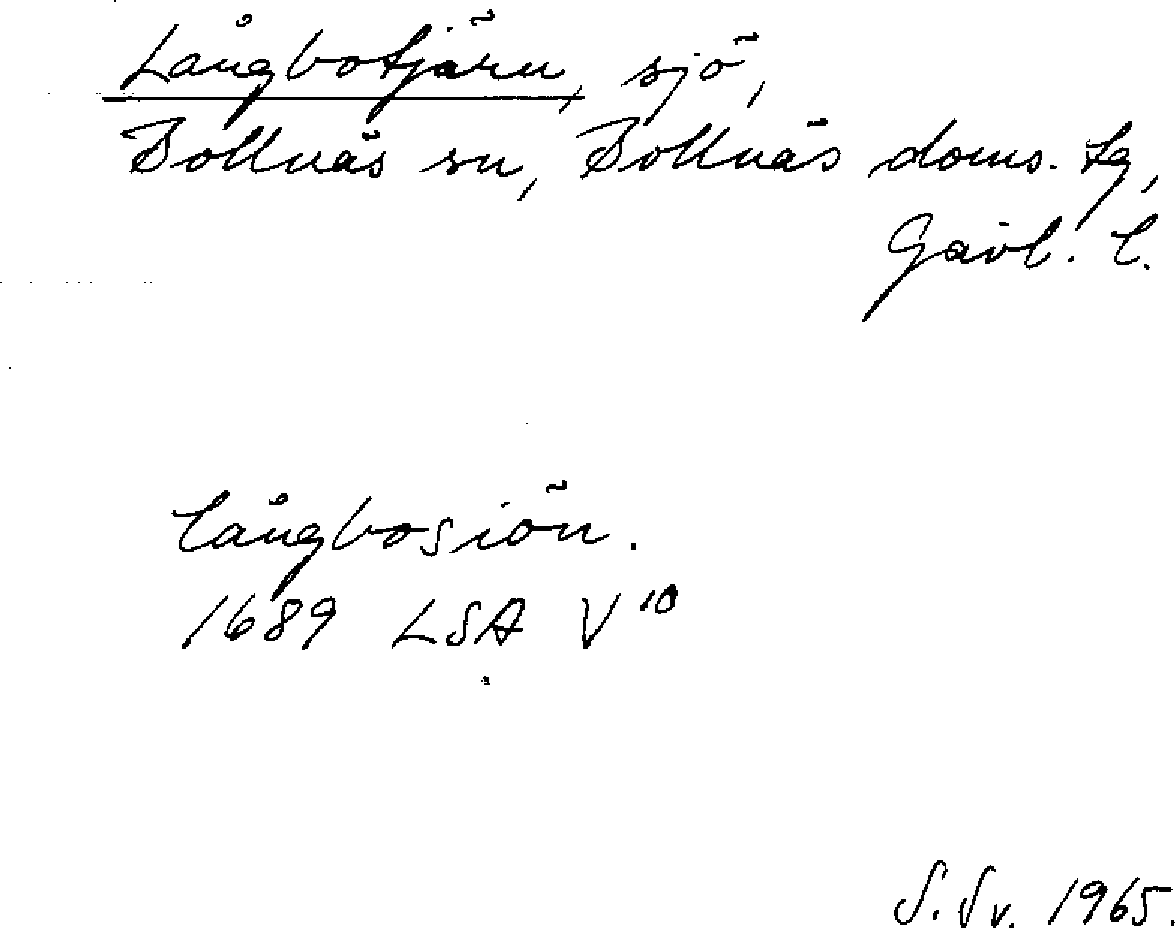 Långbotjärn, sjö,
Bollnäs sn, Bollnäs doms. tg,
Gävl. l.
Långbosiön.
1689 LSA V 10
S. Sv. 1965.